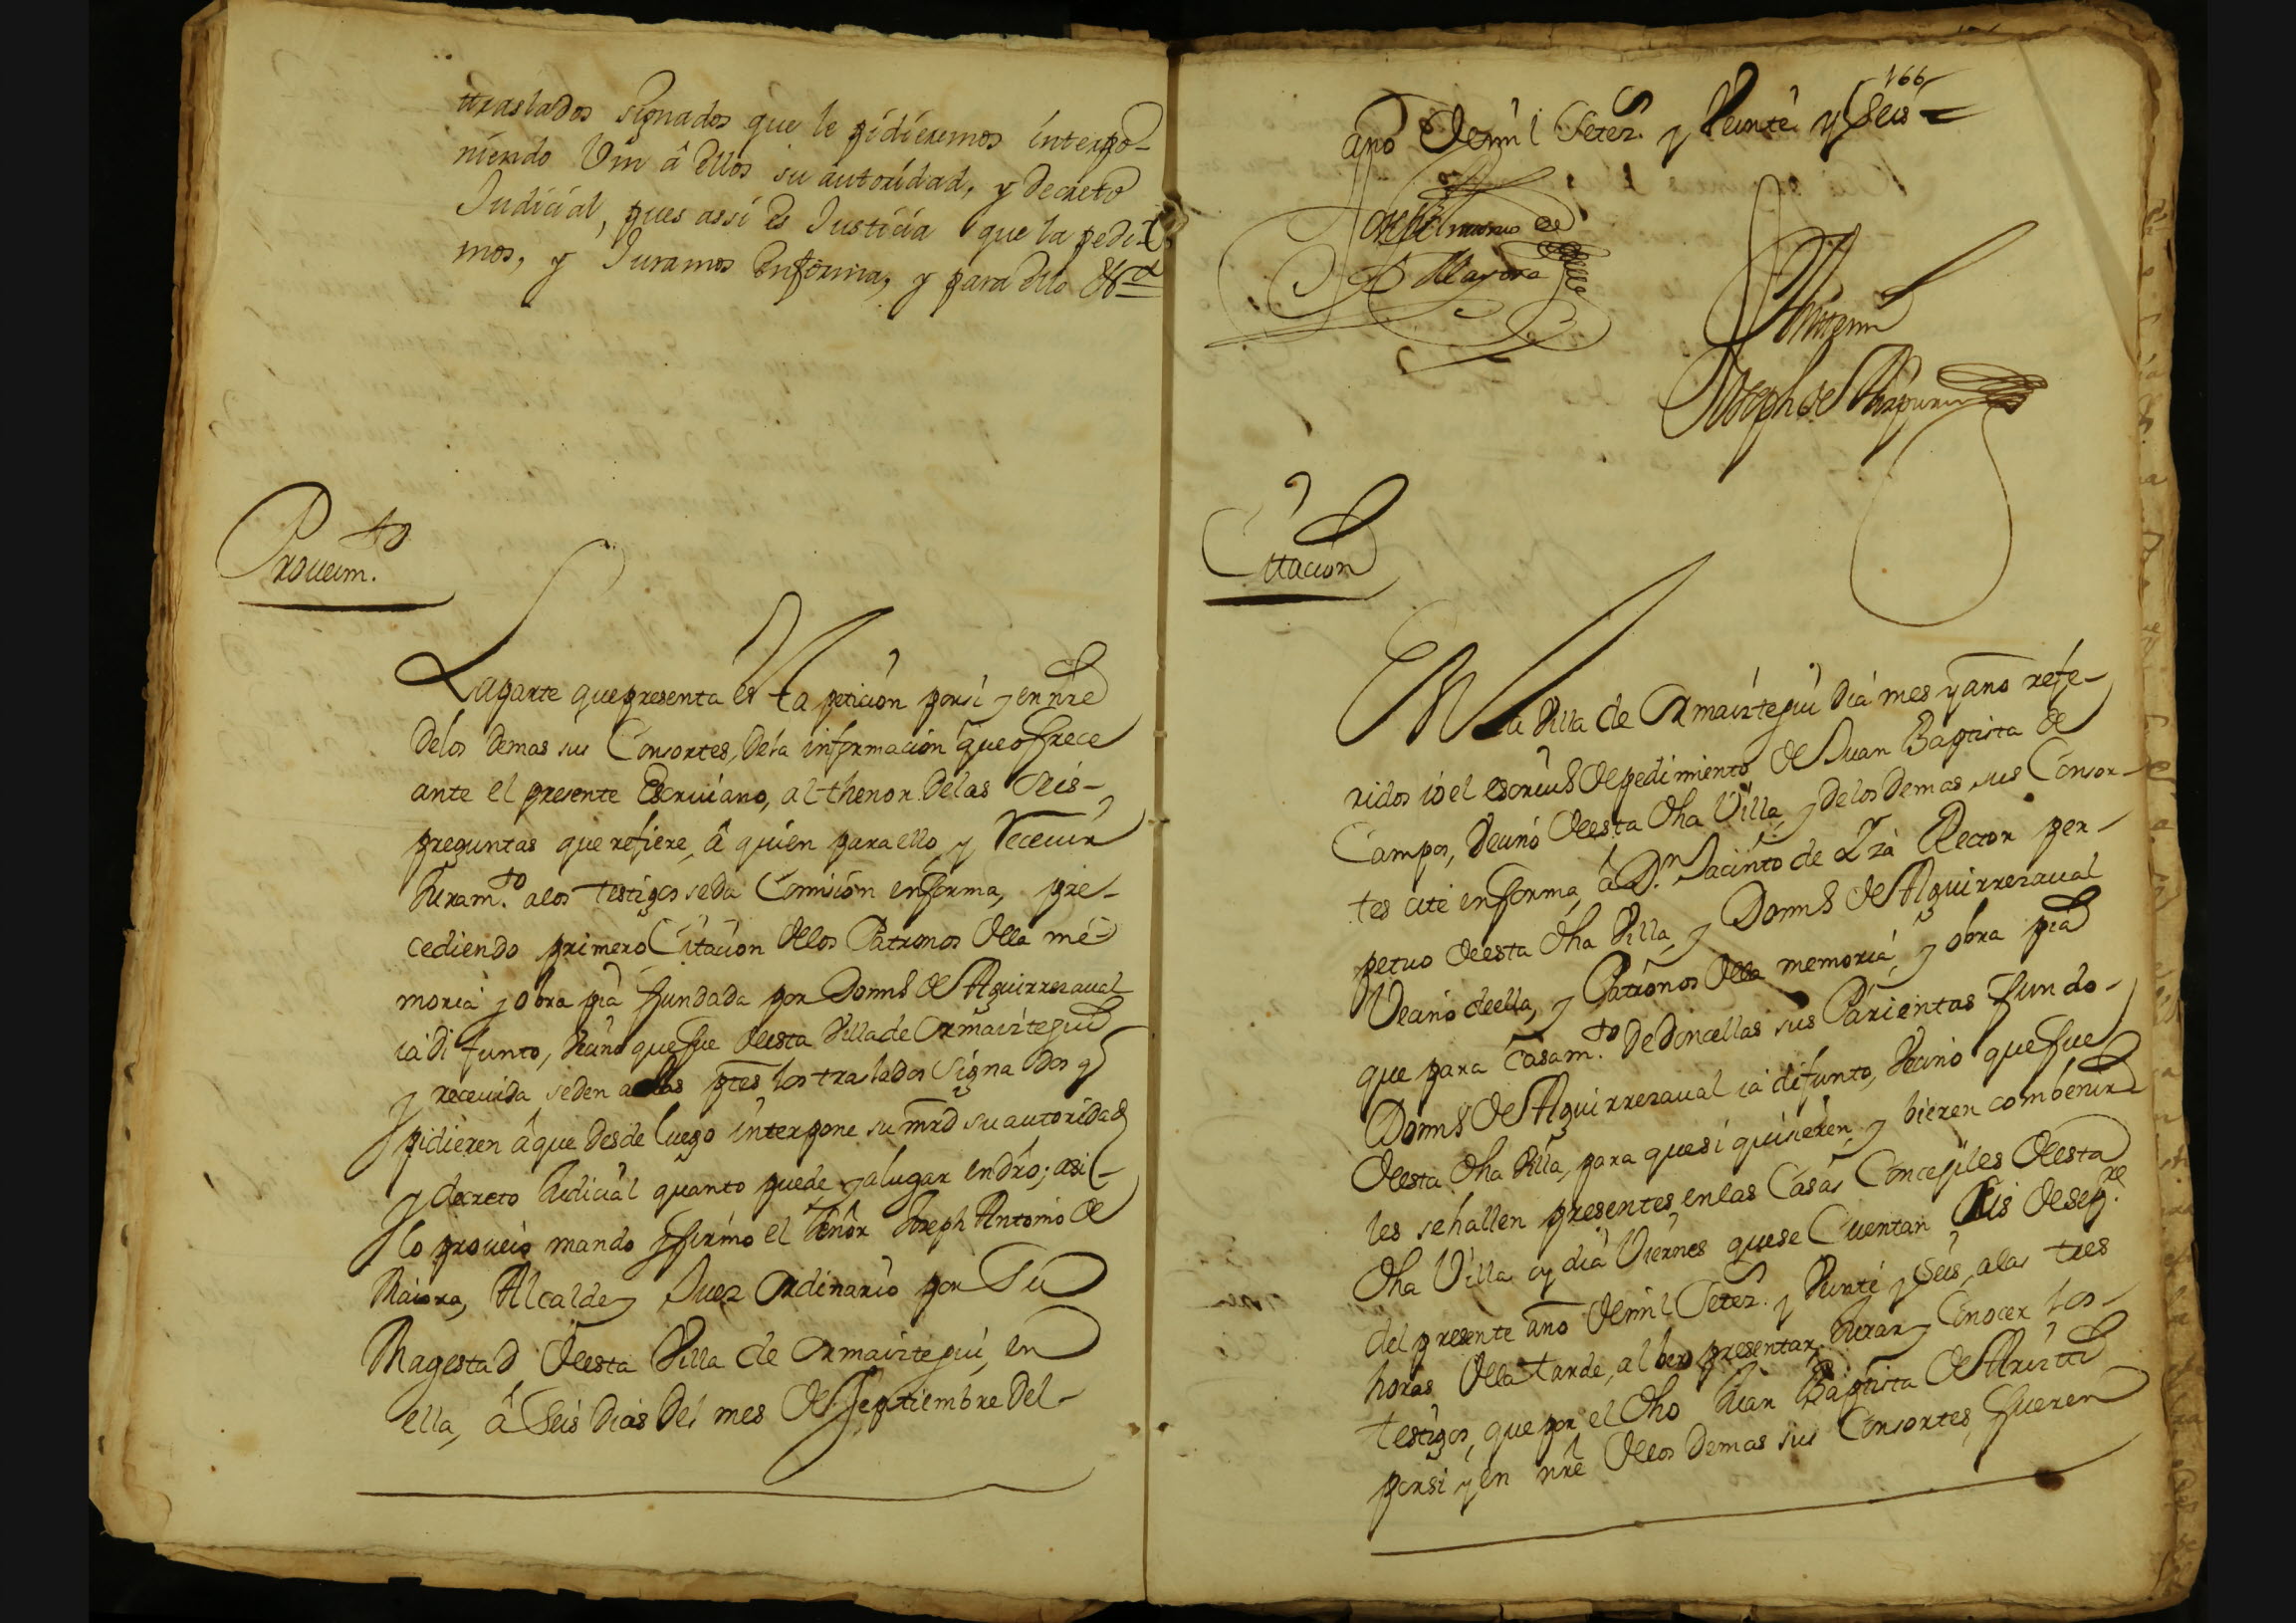 ttraslados signados que le pidieremos interpo-
niendo Vm â ellos su autoridad, y decreto
Judicial, pues assi es Justicia que la pedi-
mos, y Juramos en forma, y para ello &ª
Proueim.to
La parte que presenta esta peticion por si y en nr̃e
de los demas sus Consortes, de la informacion que ofrece
ante el presente Escriuano, al thenor de las seis-
preguntas que refiere, â quien para ello, y receuir
Juram.to a los testigos se da Comision en forma, pre-
cediendo primero Citacion de los Patronos de la me-
moria y obra pia fundada por Doming de Aguirrezaual
ia difunto, vecino que fue de esta Villa de Ormaiztegui
y receuida se den a las ptes los traslados signados q
pidieren â que desde luego interpone su mrd su autoridad
y decreto Judicial quanto puede y a lugar en dro; asi
lo proueio mando y firmo el señor Joseph Antonio de
Maiora, Alcalde y Juez ordinario por Su
Magestad de esta Villa de Ormaiztegui, en
ella, â seis dias del mes de septiembre del-
166
año de mil setez.s y Veinte y seis
Joseph Antonio de
Mayora
Ante mi
Joseph de
Cittacion
En la Villa de Ormaiztegui dia mes y año refe-
ridos io el escriu.o de pedimiento de Juan Baptista de
Campos, vecino de esta dha Villa, y de los demas sus Consor-
tes cite en forma, â D.n Jacinto de Rector per-
petuo de esta dha Villa, y Doming de Aguirrezaual
Vecino de ella, y Patronos de la memoria, y obra pia
que para Casam.to de doncellas sus Parientas fundo-
Doming de Aguirrezaual ia difunto, Vecino que fue
de esta dha Villa, para que si quisieren, y bieren combenir
les se hallen presentes en las Casas Concejiles de esta
dha Villa oy dia Viernes que se Cuentan seis de sep.re
del presente año de mil setez.s y Veinte y seis, a las tres
horas de la tarde, al ber presentar, Jurar y Conocer los-
testigos, que por el dho Juan Baptista de
por si y en nr̃e de los demas sus Consortes, fueren